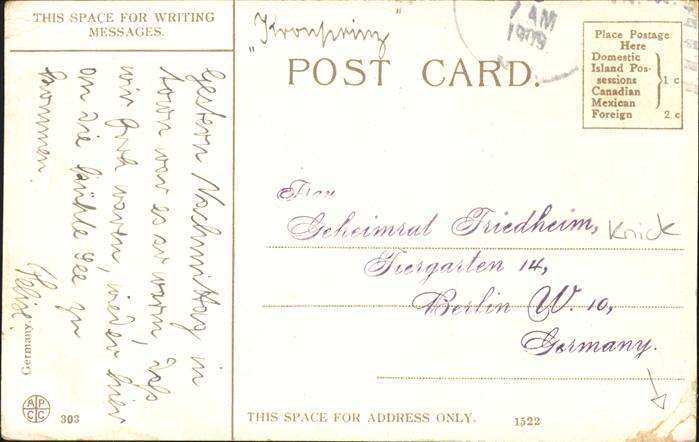 THIS SPACE FOR WRITING
MESSAGES.
Gestern Nachmittag in
town war es so warm, daß
wir froh waren, wieder hier
an die kühle See zu
kommen.
Germany.
A P
C C
303
„Kronprinz"
7 AM
1909
POST CARD.
Place Postage
Here
Domestic
Island Pos-
sessions
Canadian
Mexican
1 c
Foreign 2 c
Frau
Geheimrat Friedheim,
Knick
Tiergarten 14,
Berlin W. 10,
Germany.
THIS SPACE FOR ADDRESS ONLY.
1522